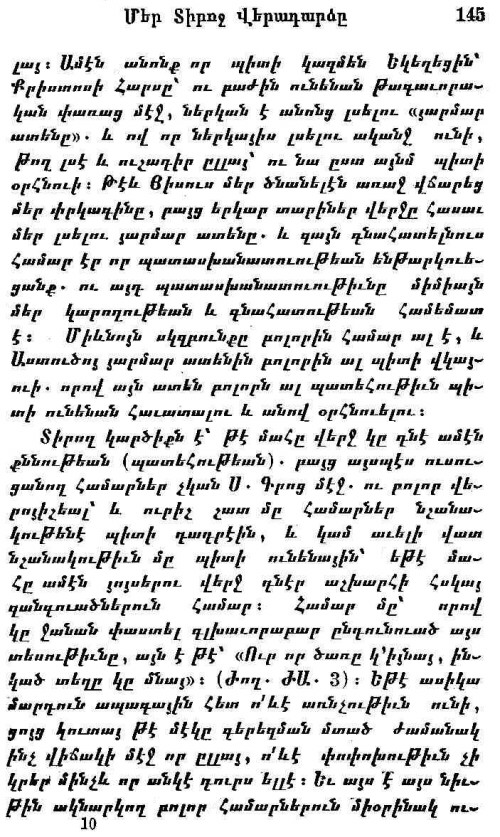 Մեր Տիրոջ Վերադարձը 145
լայ։ Ամէն անոնք որ պիտի կազմեն Եկեղեցին՝
Քրիստոսի Հարսը՝ ու բաժին ունենան Թագաւորա-
կան փառաց մէջ, ներկան է անոնց լսելու «յարմար
ատենը». և ով որ ներկայիս լսելու ականջ ունի,
թող լսէ և ուշադիր ըլլայ՝ ու նա ըստ այնմ պիտի
օրհնուի։ Թէև Յիսուս մեր ծնանելէն առաջ վճարեց
մեր փրկագինը, բայց երկար տարիներ վերջը հասաւ
մեր լսելու յարմար ատենը. և զայն գնահատելնուս
համար էր որ պատասխանատուութեան ենթարկուե-
ցանք. ու այդ պատասխանատուութիւնը միմիայն
մեր կարողութեան և գնահատութեան համեմատ
է։ Միևնոյն սկզբունքը բոլորին համար ալ է, և
Աստուծոյ յարմար ատենին բոլորին ալ պիտի վկայ-
ուի. որով այն ատեն բոլորն ալ պատեհութիւն պի-
տի ունենան հաւատալու և անով օրհնուելու։
Տիրող կարծիքն է՝ թէ մահը վերջ կը դնէ ամէն
քննութեան (պատեհութեան). բայց այսպէս ուսու-
ցանող համարներ չկան Ս. Գրոց մէջ. ու բոլոր վե-
րոյիշեալ՝ և ուրիշ շատ մը համարներ նշանա-
կութենէ պիտի դադրէին, և կամ աւելի վատ
նշանակութիւն մը պիտի ունենային՝ եթէ մա-
հը ամէն յոյսերու վերջ դնէր աշխարհի հսկայ
զանգուածներուն համար։ Համար մը՝ որով
կը ջանան փաստել գլխաւորաբար ընդունուած այս
տեսութիւնը, այն է թէ՝ «Ուր որ ծառը կ՚իյնայ, ին-
կած տեղը կը մնայ»։ (Ժող. ԺԱ. 3)։ Եթէ ասիկա
մարդուն ապագային հետ ո՛ևէ առնչութիւն ունի,
ցոյց կուտայ թէ մէկը գերեզման մտած ժամանակ
ինչ վիճակի մէջ որ ըլլայ, ո՛ևէ փոփոխութիւն չի
կրեր մինչև որ անկէ դուրս ելլէ։ Եւ այս է այս նիւ-
թին ակնարկող բոլոր համարներուն միօրինակ ու-
10